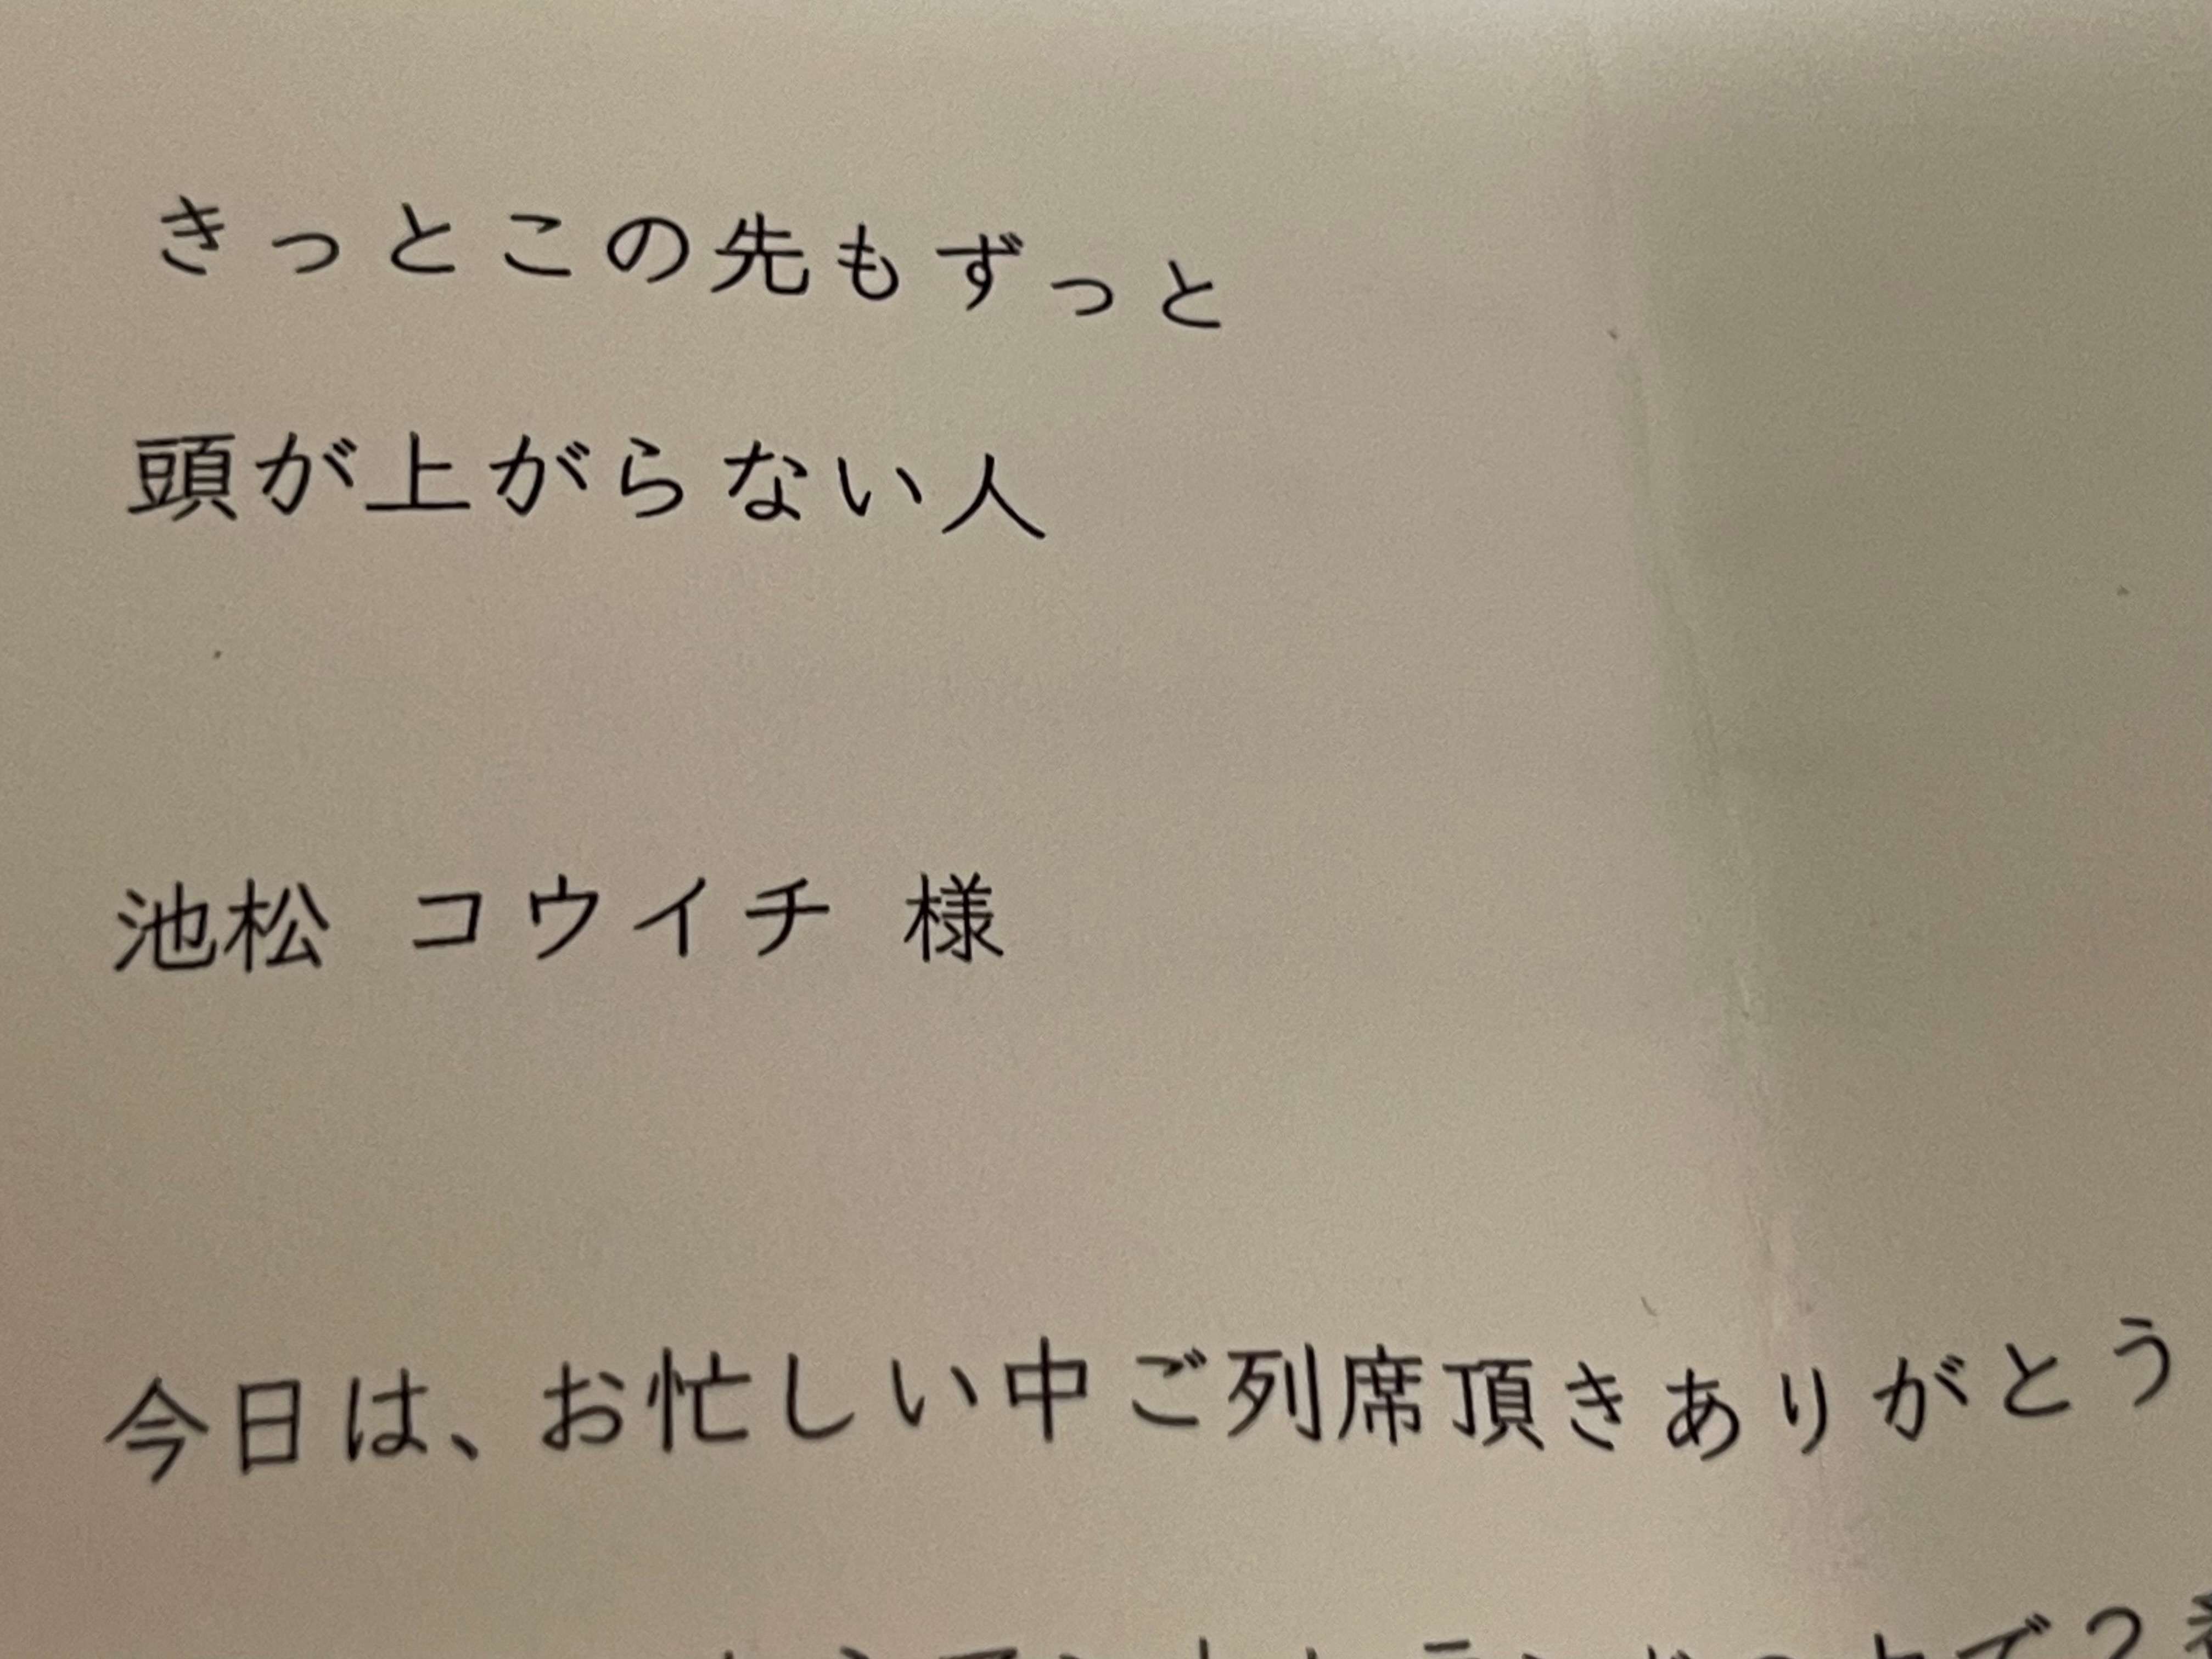 きっとこの先もずっと
頭が上がらない人
池松 コウイチ 様
今日は、お忙しい中ご列席頂きありがとう